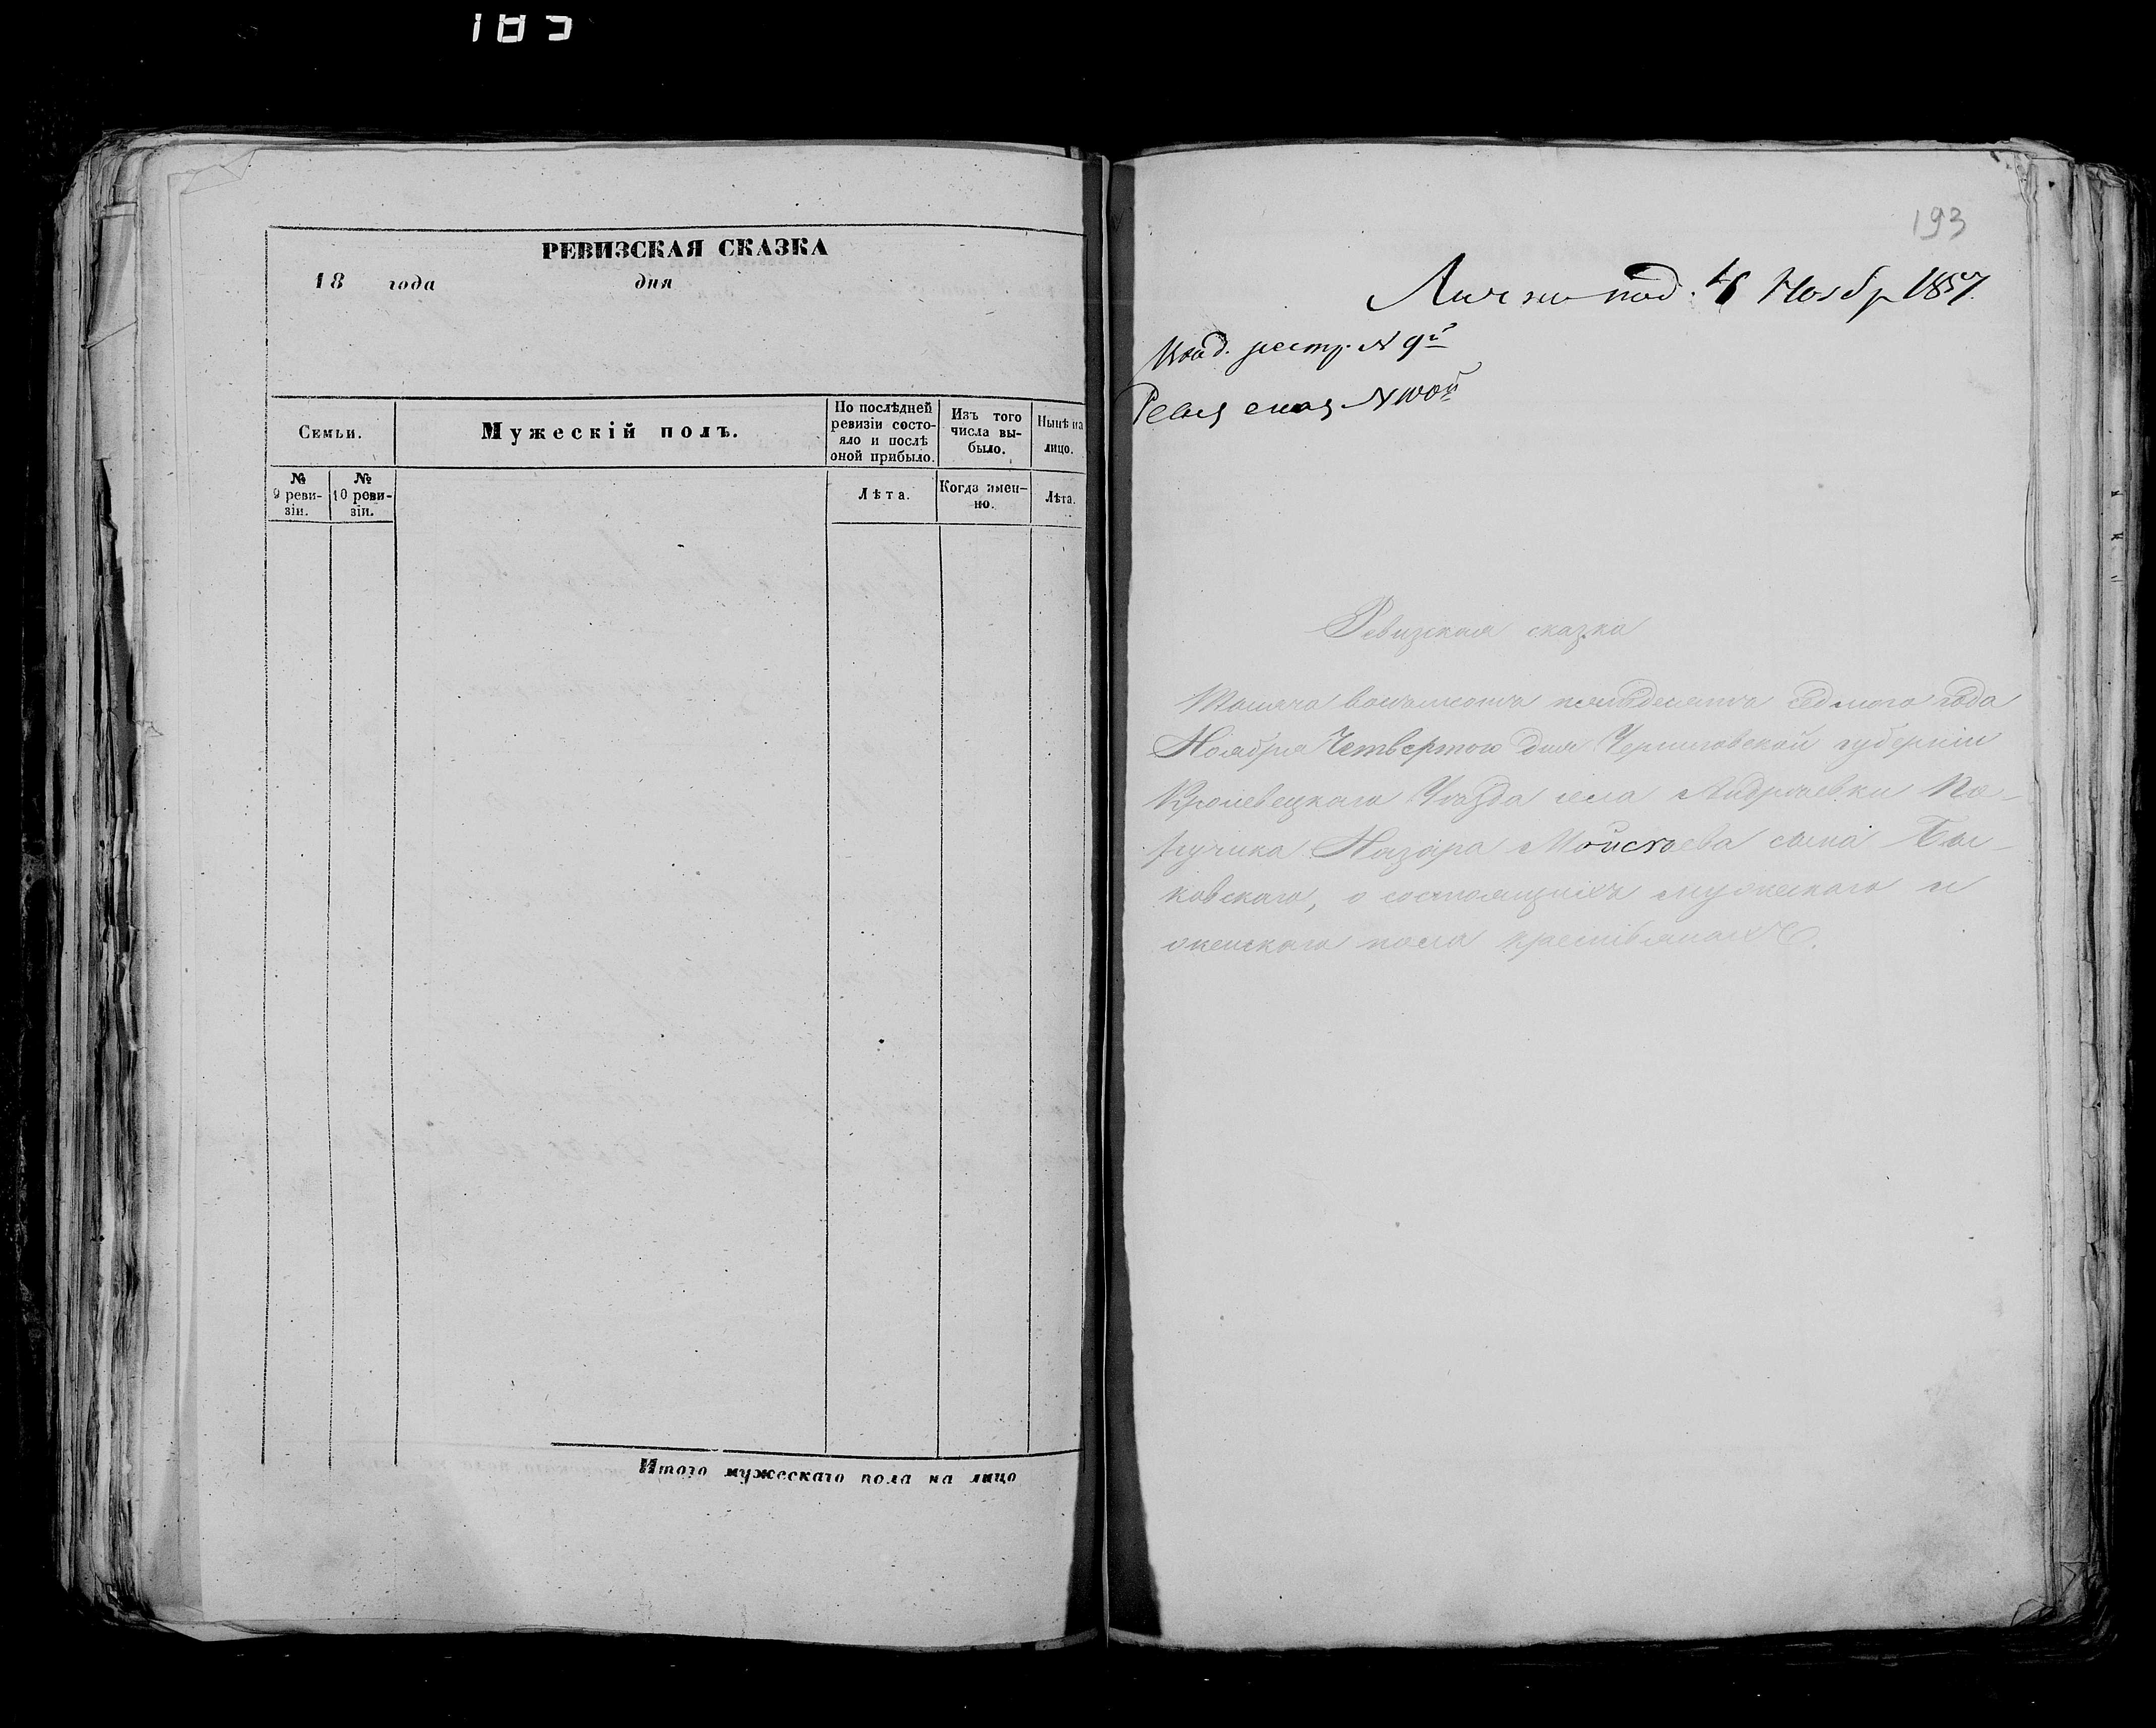 185
РЕВИЗСКАЯ СКАЗКА
18 года дня
Семьи.
Мужескій полъ.
По послѣдней ревизіи состо-
яло и послѣ
оной прибыло.
Изъ того
числа вы-
было.
Нынѣ на
лицо.
№
9 реви-
зіи.
№
10 реви-
зіи.
Лѣта.
Когда имен-
но.
Лѣта.
Итого мужескаго пола на лицо
193
Лично под. 4 Ноябр 1857.
реестр. N 9й
Ревиз сказ N 100й
Ревизская сказка
Тысяча восемьсотъ пятдесятъ седмого года
Ноября Четвертого дня Черниговской губерніи
Кролевецкаго Уѣзда села Андреевки По-
ручика Назара Мойсѣева сына Бы-
ковскаго, о состоящихъ мужескаго и
женскаго пола крестьянахъ.